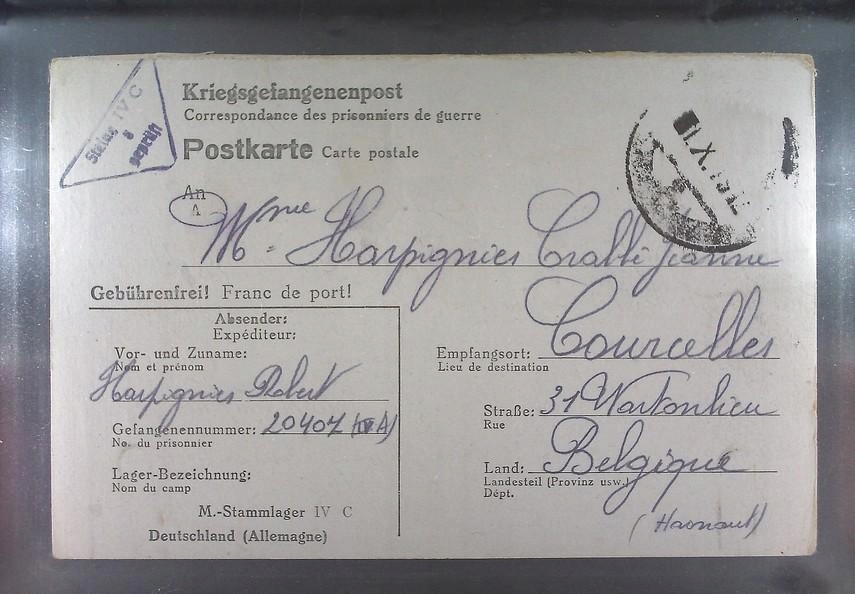 Stalag IV C
8
geprüft
Kriegsgefangenenpost
Correspondance des prisonniers de guerre
Postkarte Carte postale
An
A
Mme Harpignies Cralli Jeanne
Gebührenfrei! Franc de port!
Absender:
Expéditeur:
Vor- und Zuname:
Nom et prénom
Harpignies Robert
Gefangenennummer: 20407 (IV A)
No. du prisonnier
Lager-Bezeichnung:
Nom du camp
M.-Stammlager IV C
Deutschland (Allemagne)
Empfangsort: Courcelles
Lieu de destination
Straße: 31 Wartonlieu
Rue
Land: Belgique
Landesteil (Provinz usw.)
Dépt.
(Hainaut)